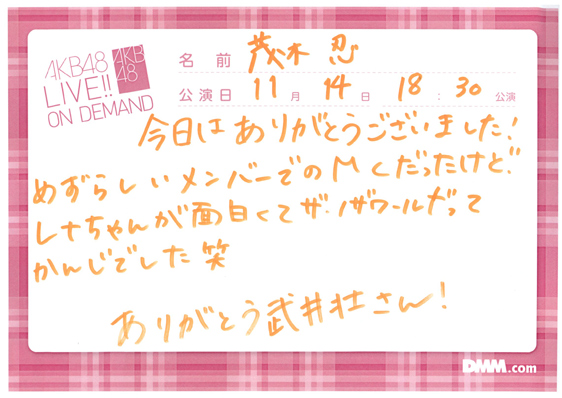 AKB48
LIVE!!
ON DEMAND
AKB
48
名前 茂木 忍
公演日 11月 14日 18:30 公演
今日はありがとうございました!
めずらしいメンバーでのMCだったけど、
レナちゃんが面白くてザ・ノザワールドって
かんじでした 笑
ありがとう武井壮さん!
DMM.com